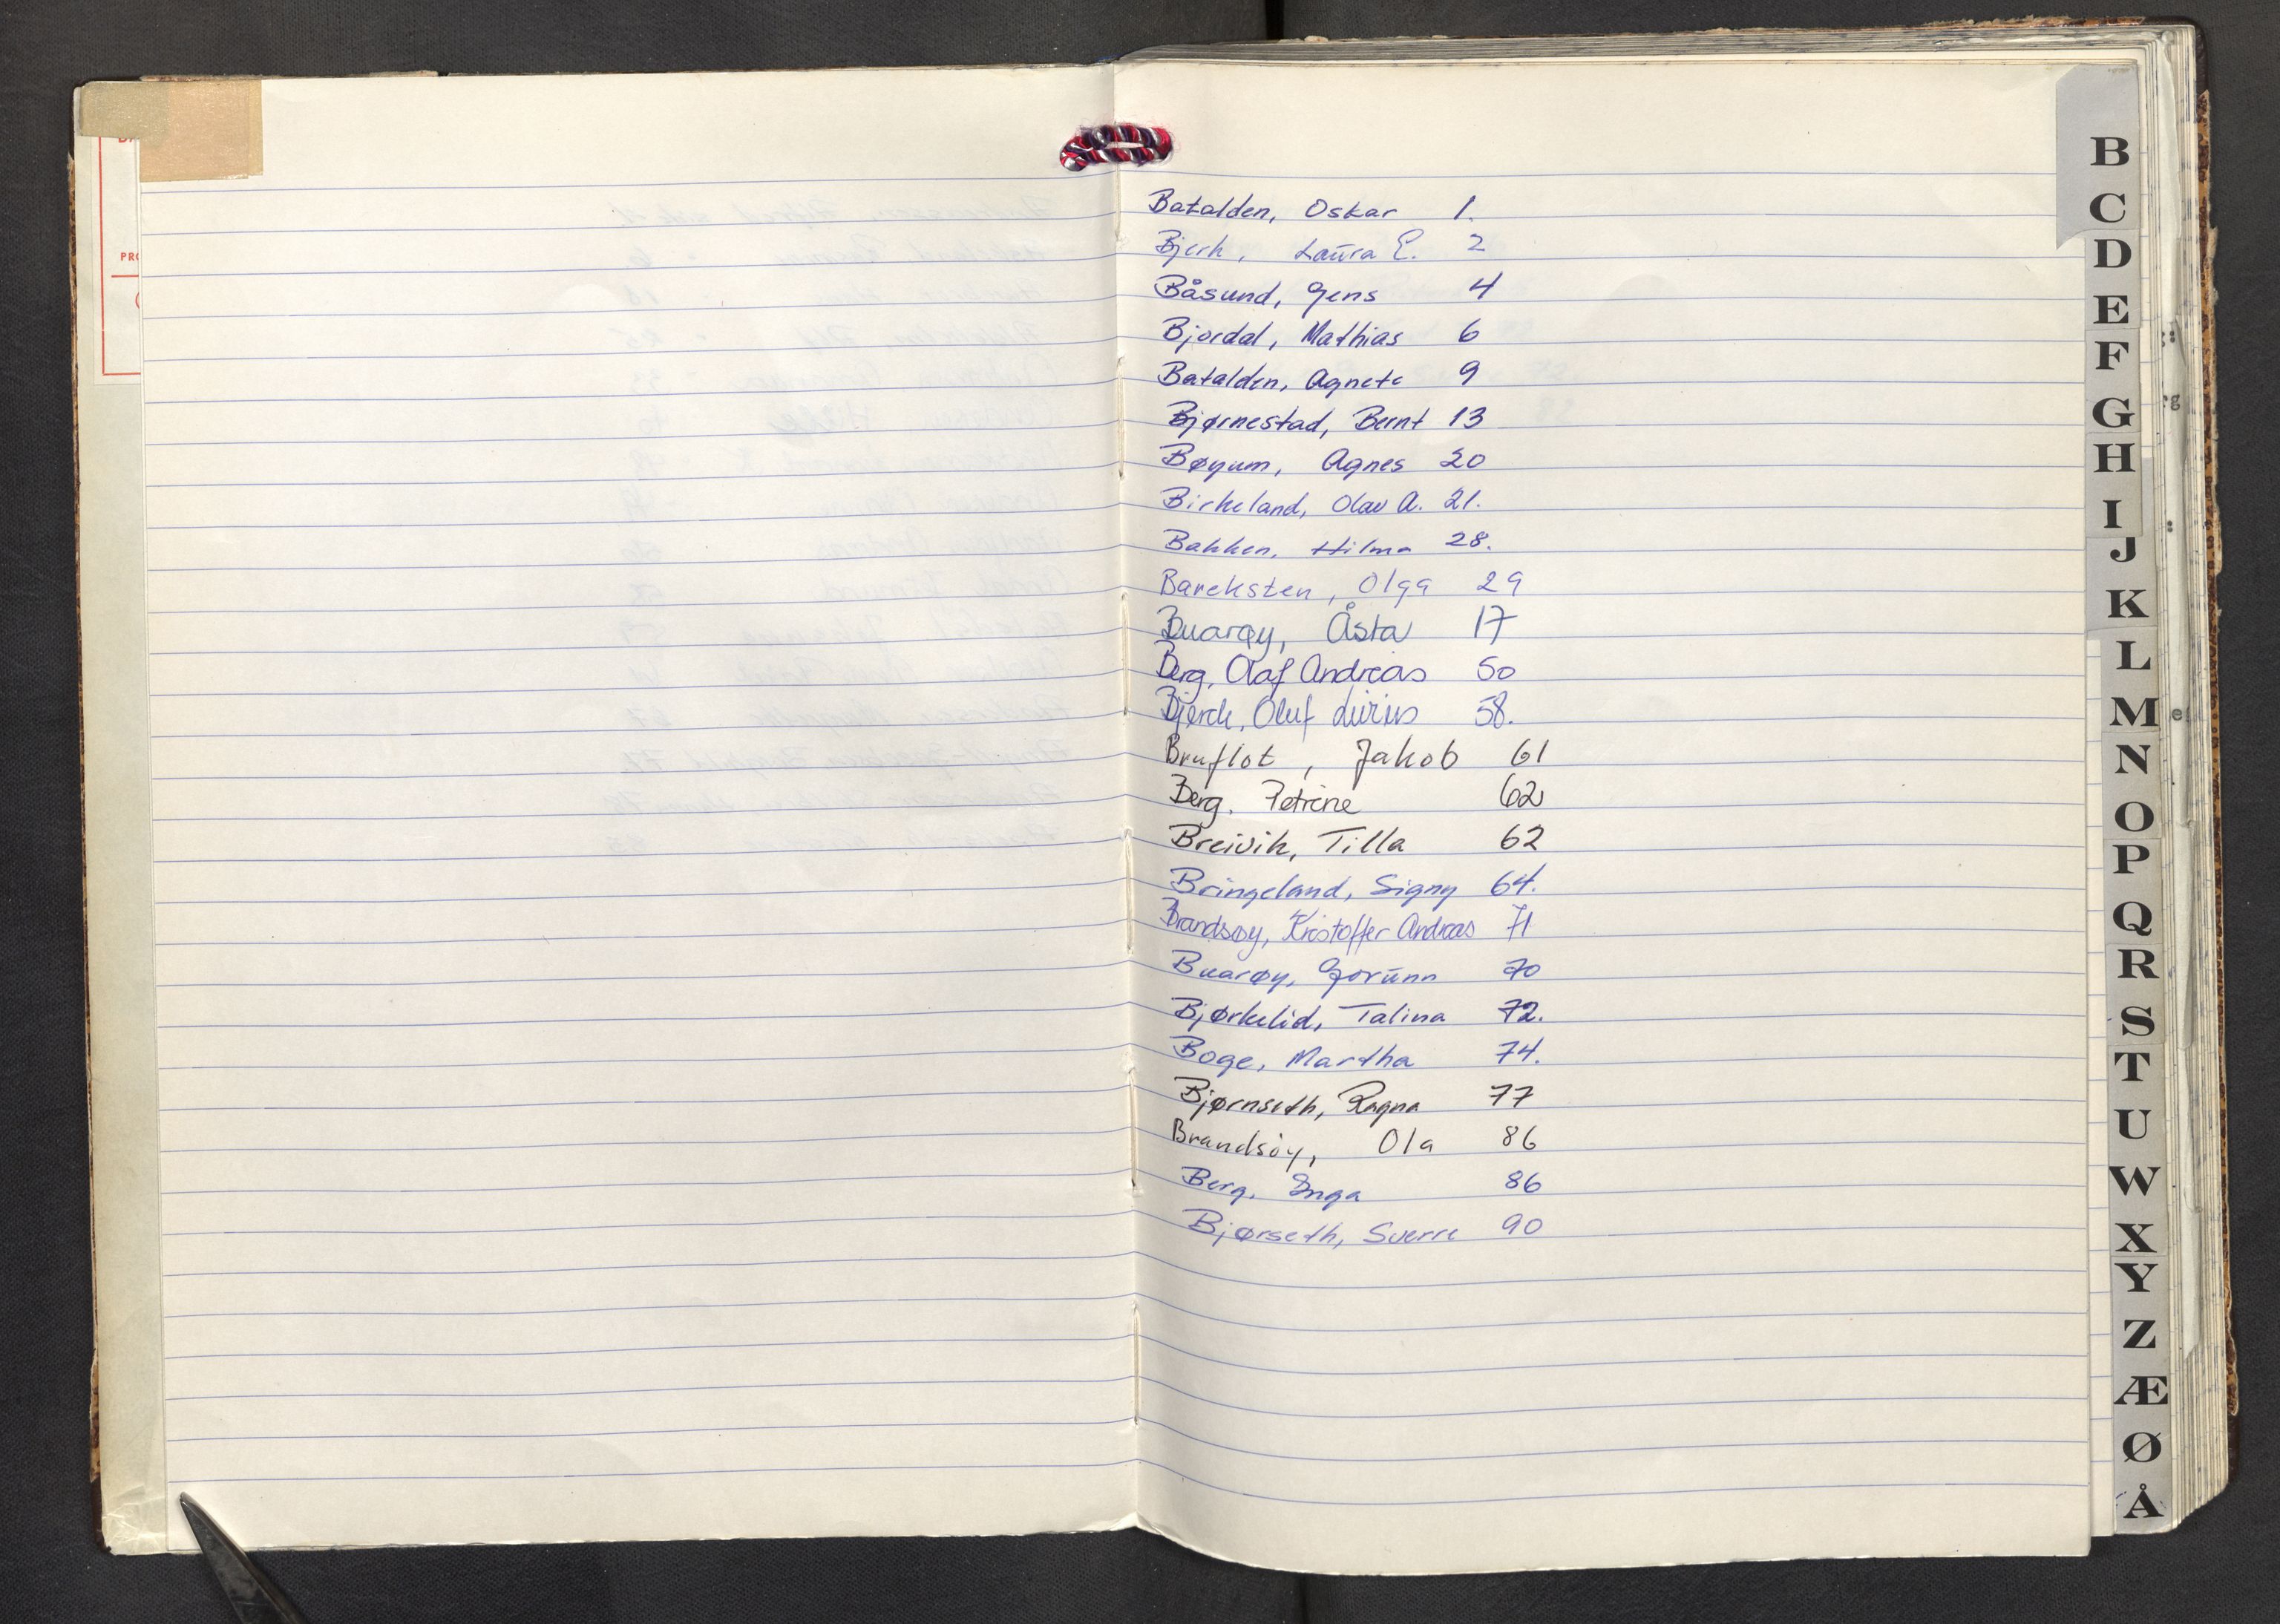 Batalden, Oskar 1.
Bjerk, Laura E. 2
Båsund, Jens 4
Bjordal, Mathias 6
Batalden, Agnete 9
Bjørnestad, Bernt 13
Bøyum, Agnes 20
Birkeland, Olav A. 21.
Bakken, Hilma 28.
Bareksten, Olga 29
Buarøy, Åsta 17
Berg, Olaf Andreas 50
Bjerck, Oluf 58.
Bruflot, Jakob 61
Berg, Petrine 62
Breivik, Tilla 62
Bringeland, Signy 64.
Brandsøy, Kristoffer Andreas 71
Buarøy, Jorunn 70
Bjørkelid, Talina 72.
Boge, Martha 74.
Bjørnseth, Ragna 77
Brandsøy, Ola 86
Berg, Inga 86
Bjørseth, Sverre 90
B
C
D
E
F
G
H
I
J
K
L
M
N
O
P
Q
R
S
T
U
W
X
Y
Z
Æ
Ø
Å